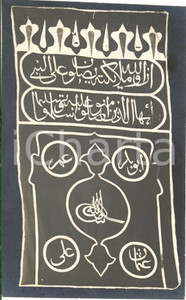 ان الله وملائكته يصلون على النبي
يا ايها الذين امنوا صلوا عليه وسلموا تسليما
ابوبكر عمر
iCharta
عثمان علي